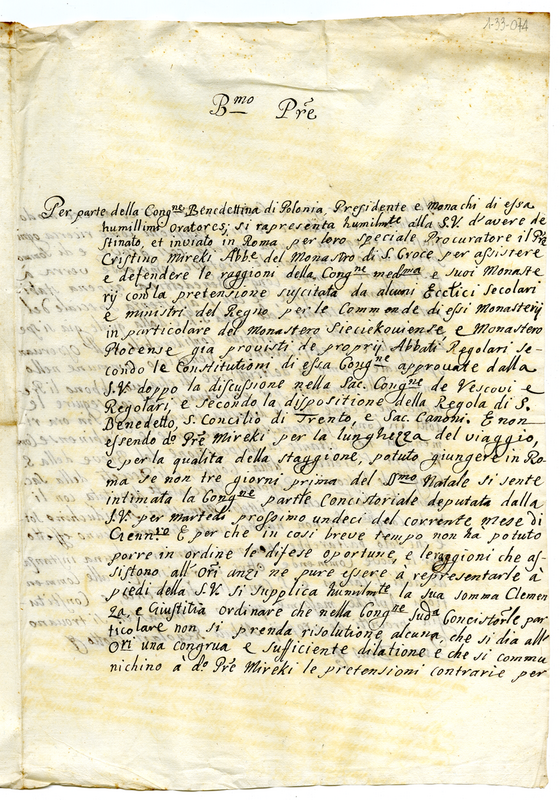 1-33-074
Bmo Pre
Per parte della Congne Benedettina di Polonia Presidente e monachi di essa
humillimi Oratores; si rapresenta humilmte alla S.V. d'avere de
stinato, et inviato in Roma per loro speciale Procuratore il Pre
Cristino Mireki Abbe del Monastro di S. Croce per assistere
e defendere le raggioni della Congne medma e suoi Monaste
rij con la pretensione suscitata da alcuni Ecctici Secolari
e ministri del Regno per le Commende di essi Monasterij
in particolare del Monastero Sieciekowiense, e Monastero
Plocense già provisti de proprij Abbati Regolari se-
condo le Constitutioni di essa Congne approvate dalla
S.V. doppo la discussione nella Sac. Congne de Vescovi e
Regolari e secondo la dispositione della Regola di S.
Benedetto, S. Concilio di Trento, e Sac. Canoni. E non
essendo do Pre Mireki per la lunghezza del viaggio,
e per la qualita della staggione, potuto giungere in Ro-
ma se non tre giorni prima del SSmo Natale si sente
intimata la Congne partle Concistoriale deputata dalla
S.V. per Martedi prossimo undeci del corrente mese di
Genniro E per che in cosi breve tempo non ha potuto
porre in ordine le difese oportune, e le raggioni che as-
sistono all' Ori anzi ne pure essere à representarle à
piedi della S.V. si supplica humilmte la sua somma Clemen
za, e Giustitia ordinare che nella Congne suda Concistorle par
ticolare non si prenda risolutione alcuna, che si dia all'
Ori una congrua e sufficiente dilatione e che si commu
nichino à do Pre Mireki le pretensioni contrarie per